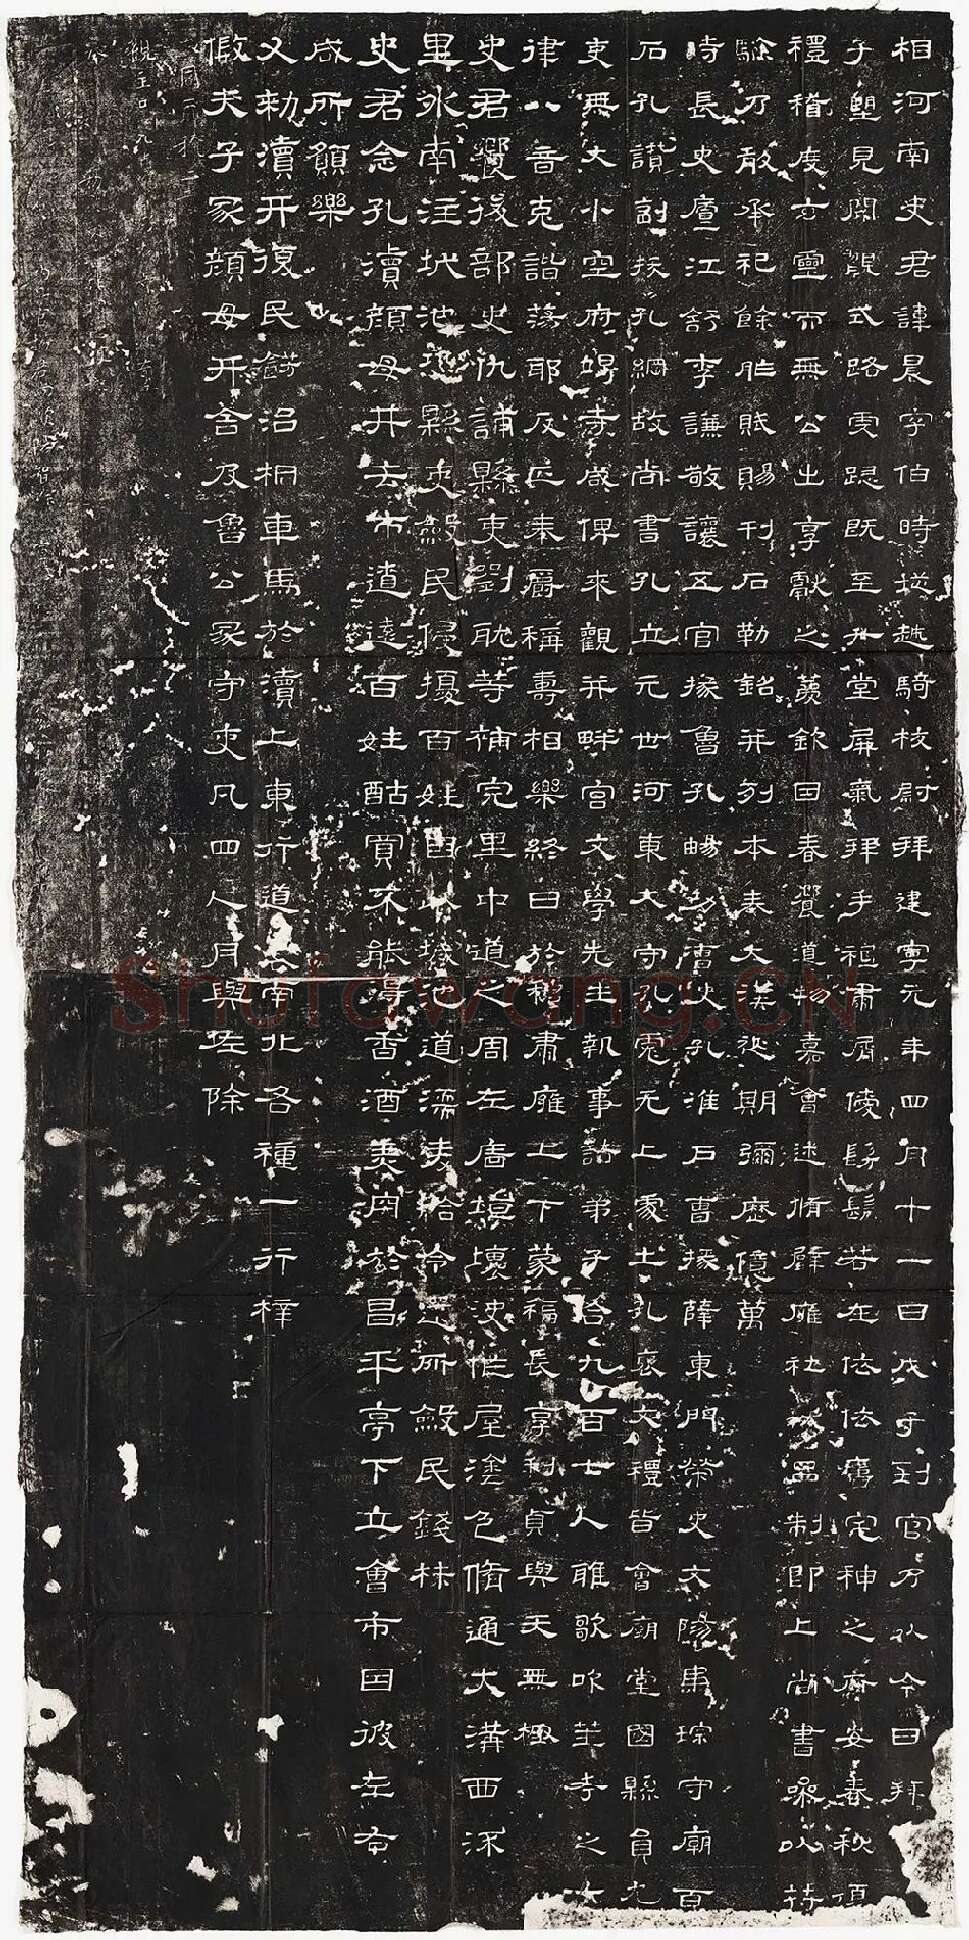 相河南史君諱晨字伯時從越騎校尉拜建寧元年四月十一日戊子到官乃以令日拜
子望見闕觀式路虔跽既至升堂屏氣拜手祗肅屑僾髣髴若在依依舊宅神之所安春秋復
禮稽度玄靈而無公出享獻之薦欽因春饗導物嘉會述脩璧雍社稷品制即上尚書參以符
驗乃敢承祀餘胙賦賜刊石勒銘并列本奏大漢延期彌歷億萬
時長史廬江舒李謙敬讓五官掾魯孔暢功曹史孔淮戶曹掾薛東門榮史文陽馬琮守廟百
石孔讚副掾孔綱故尚書孔立元世河東大守孔彪元上處士孔褒文禮皆會廟堂國縣員冗
吏無大小空府竭寺咸俾來觀并畔宮文學先生執事諸弟子合九百七人雅歌吹笙考之六
律八音克諧蕩邪反正奉爵稱壽相樂終日於穆肅雍上下蒙福長享利貞與天無極
史君饗後部史仇誧縣吏劉耽等補完里中道之周左廧垣壞決作屋塗色脩通大溝西流
里外南注城池恐縣吏斂民侵擾百姓自以城池道濡麥給令還所斂民錢材
史君念孔瀆顏母井去市遼遠百姓酤買不能得香酒美肉於昌平亭下立會市因彼左右
咸所願樂
又敕瀆井復民餝治桐車馬於瀆上東行道表南北各種一行梓
假夫子冢顏母井舍及魯公冢守吏凡四人月與佐除
Shufawang.CN